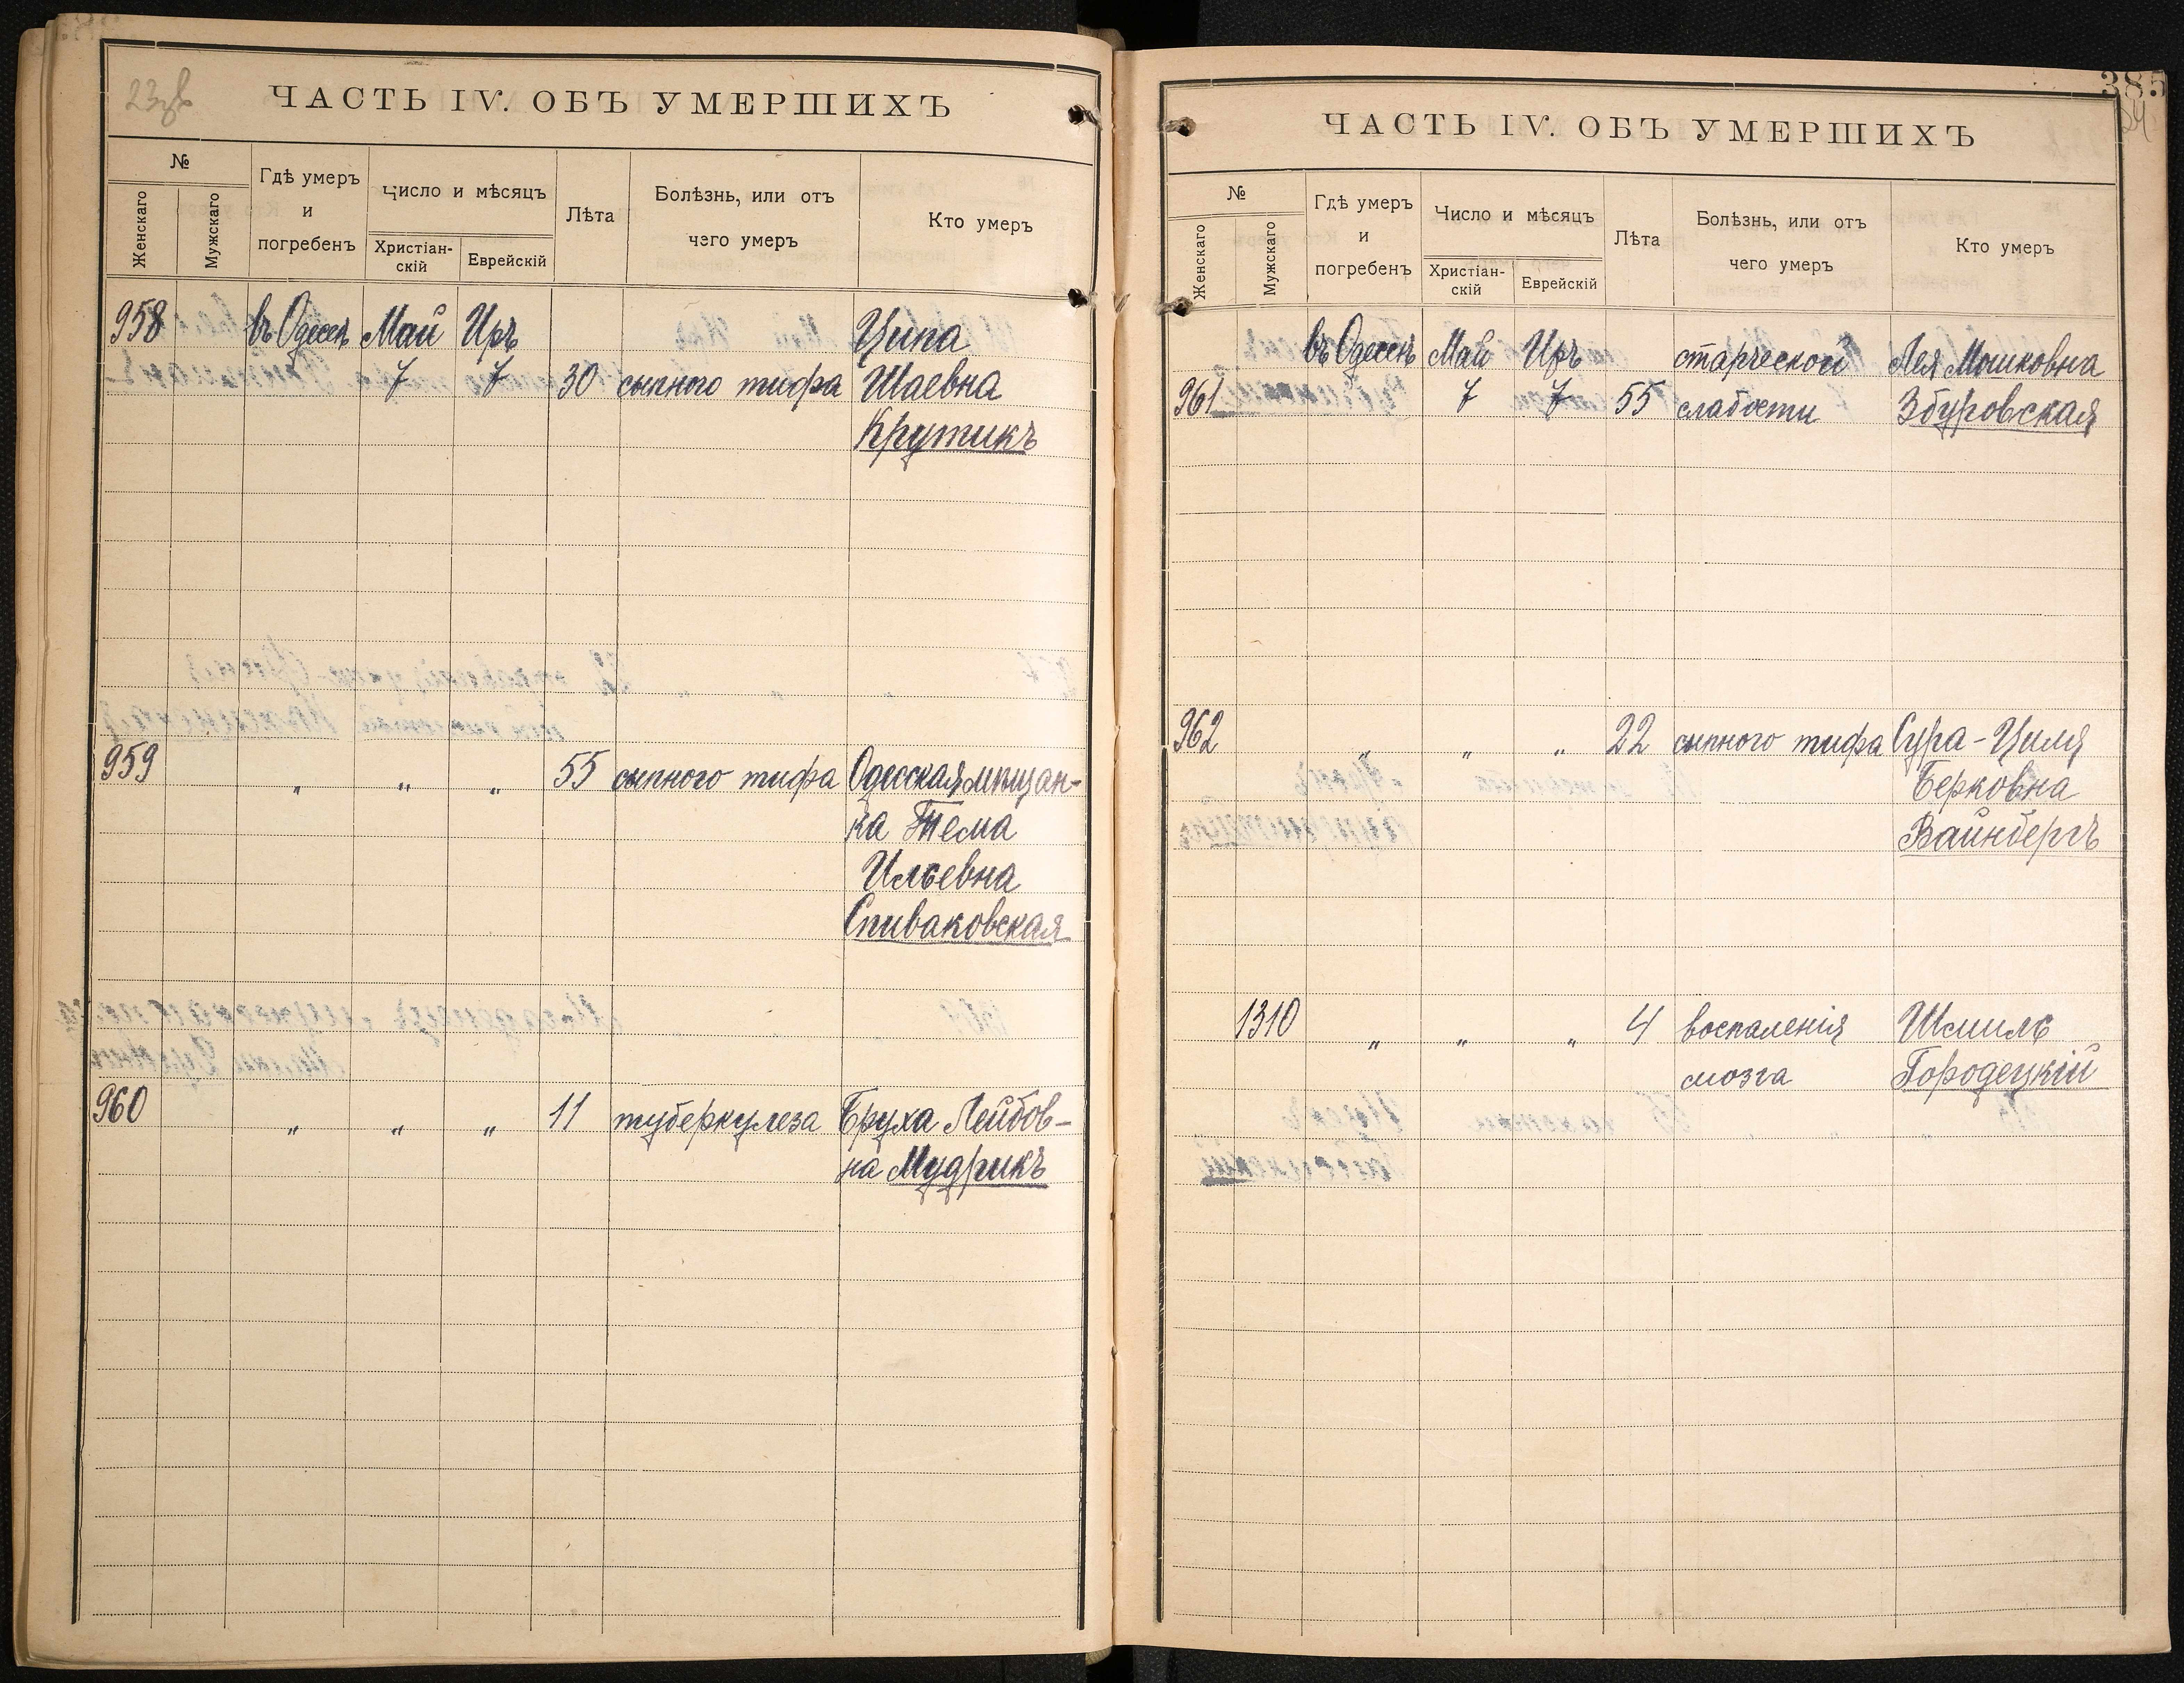 ЧАСТЬ IV. ОБЪ УМЕРШИХЪ
№
Женскаго
Мужскаго
Гдѣ умеръ
и
погребенъ
Число и мѣсяцъ
Христіан-
скій
Еврейскій
Лѣта
Болѣзнь, или отъ
чего умеръ
Кто умеръ
958 въ Одессѣ Май Иръ Ципа
7 7 30 сыпного тифа Шаевна
Крутикъ
959 " " " 55 сыпного тифа Одесская мѣщан-
ка Тема
Ильевна
Спиваковская
960 " " " 11 туберкулеза Бруха Лейбов-
на Мудрикъ
385
ЧАСТЬ IV. ОБЪ УМЕРШИХЪ
№
Женскаго
Мужскаго
Гдѣ умеръ
и
погребенъ
Число и мѣсяцъ
Христіан-
скій
Еврейскій
Лѣта
Болѣзнь, или отъ
чего умеръ
Кто умеръ
въ Одессѣ Май Иръ старческой Лея Мошковна
961 7 7 55 слабости Збуровская
962 " " " 22 сыпного тифа Сура-Циля
Берковна
Вайнбергъ
1310 " " " 4 воспаленія Шмиль
мозга Городецкій